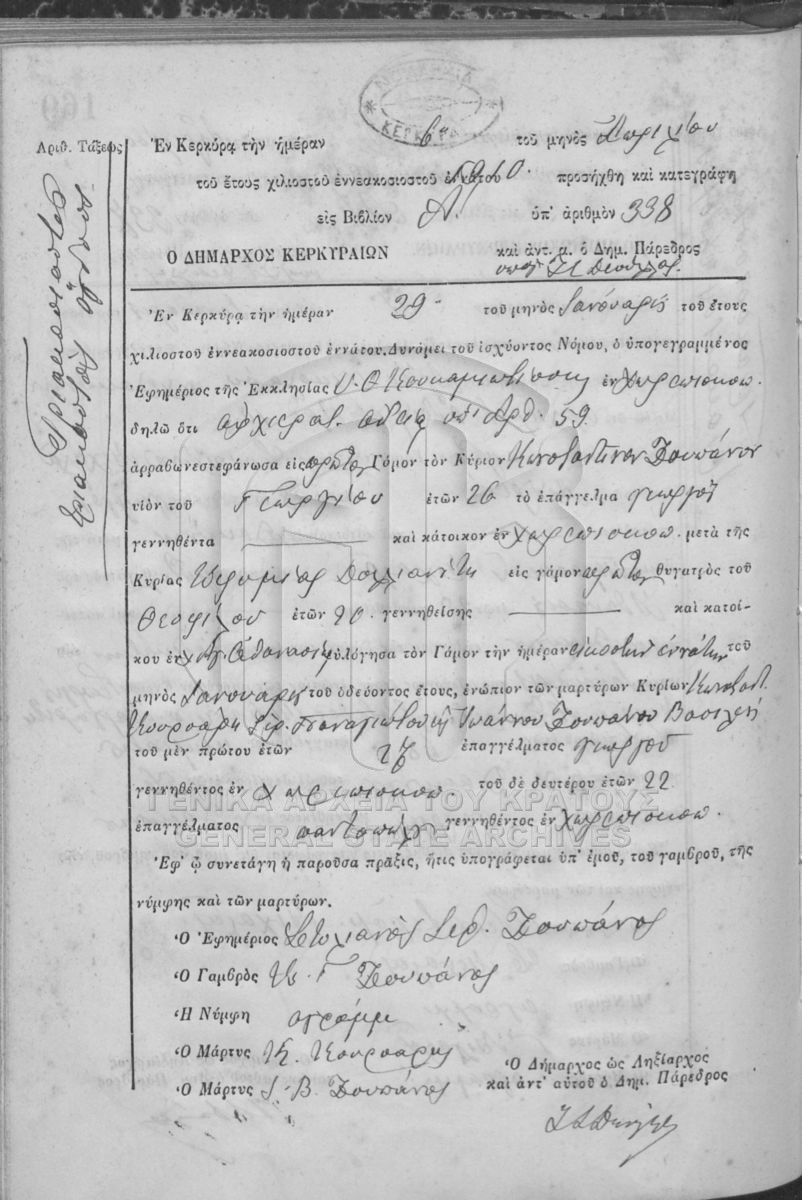 ΚΕΡΚΥΡΑ
Ἀριθ. Τάξεως
Τριακόσια τριάκοντα ὀκτώ
Ἐν Κερκύρᾳ τὴν ἡμέραν 6ην τοῦ μηνὸς Ἀπριλίου
τοῦ ἔτους χιλιοστοῦ ἐννεακοσιοστοῦ ἐννάτου 1910. προσήχθη καὶ κατεγράφη
εἰς Βιβλίον Α! ὑπ' ἀριθμὸν 338
Ο ΔΗΜΑΡΧΟΣ ΚΕΡΚΥΡΑΙΩΝ καὶ ἀντ. α. ὁ Δημ. Πάρεδρος
Ἐν Κερκύρᾳ τὴν ἡμέραν 29 τοῦ μηνὸς Ἰανουαρίς τοῦ ἔτους
χιλιοστοῦ ἐννεακοσιοστοῦ ἐννάτου. Δυνάμει τοῦ ἰσχύοντος Νόμου, ὁ ὑπογεγραμμένος
Ἐφημέριος τῆς Ἐκκλησίας Υ. Θ. ἐν Χωρεπισκοπ.
δηλῶ ὅτι ἀρχιερατ. ἀδείᾳ ὑπ' Ἀρθ. 59
ἀρραβωνεστεφάνωσα εἰς πρῶτον Γάμον τὸν Κύριον Κωνσταντῖνον Ζουπάνον
υἱὸν τοῦ Γεωργίου ἐτῶν 26 τὸ ἐπάγγελμα γεωργὸς
γεννηθέντα καὶ κάτοικον ἐν Χωρεπισκοπ. μετὰ τῆς
Κυρίας εἰς γάμον πρῶτον θυγατρὸς τοῦ
Θεοφίλου ἐτῶν 20. γεννηθείσης καὶ κατοί-
κου ἐν Χ. Ἁγ. Ἀθανασίῳ εὐλόγησα τὸν Γάμον τὴν ἡμέραν εἰκοστὴν ἐννάτην τοῦ
μηνὸς Ἰανουαρίς τοῦ ὁδεύοντος ἔτους, ἐνώπιον τῶν μαρτύρων Κυρίων Κωνσταντ.
Κουρσάρη Σπ. Παναγιώτου ἢ Ἰωάννου Ζουπάνου Βασιλείου
τοῦ μὲν πρώτου ἐτῶν 27 ἐπαγγέλματος γεωργοῦ
γεννηθέντος ἐν Χωρεπισκοπ. τοῦ δὲ δευτέρου ἐτῶν 22
ἐπαγγέλματος παντοπώλ. γεννηθέντος ἐν Χωρεπισκοπ.
ΓΕΝΙΚΑ ΑΡΧΕΙΑ ΤΟΥ ΚΡΑΤΟΥΣ
GENERAL STATE ARCHIVES
Ἐφ' ᾧ συνετάγη ἡ παροῦσα πρᾶξις, ἥτις ὑπογράφεται ὑπ' ἐμοῦ, τοῦ γαμβροῦ, τῆς
νύμφης καὶ τῶν μαρτύρων.
Ὁ Ἐφημέριος Στυλιανὸς Ζουπάνος
Ὁ Γαμβρὸς Κ. Γ Ζουπάνος
Ἡ Νύμφη ἀγράμμ
Ὁ Μάρτυς Κ. Κουρσάρης
Ὁ Μάρτυς Ι. Β. Ζουπάνος
Ὁ Δήμαρχος ὡς Ληξίαρχος
καὶ ἀντ' αὐτοῦ ὁ Δημ. Πάρεδρος